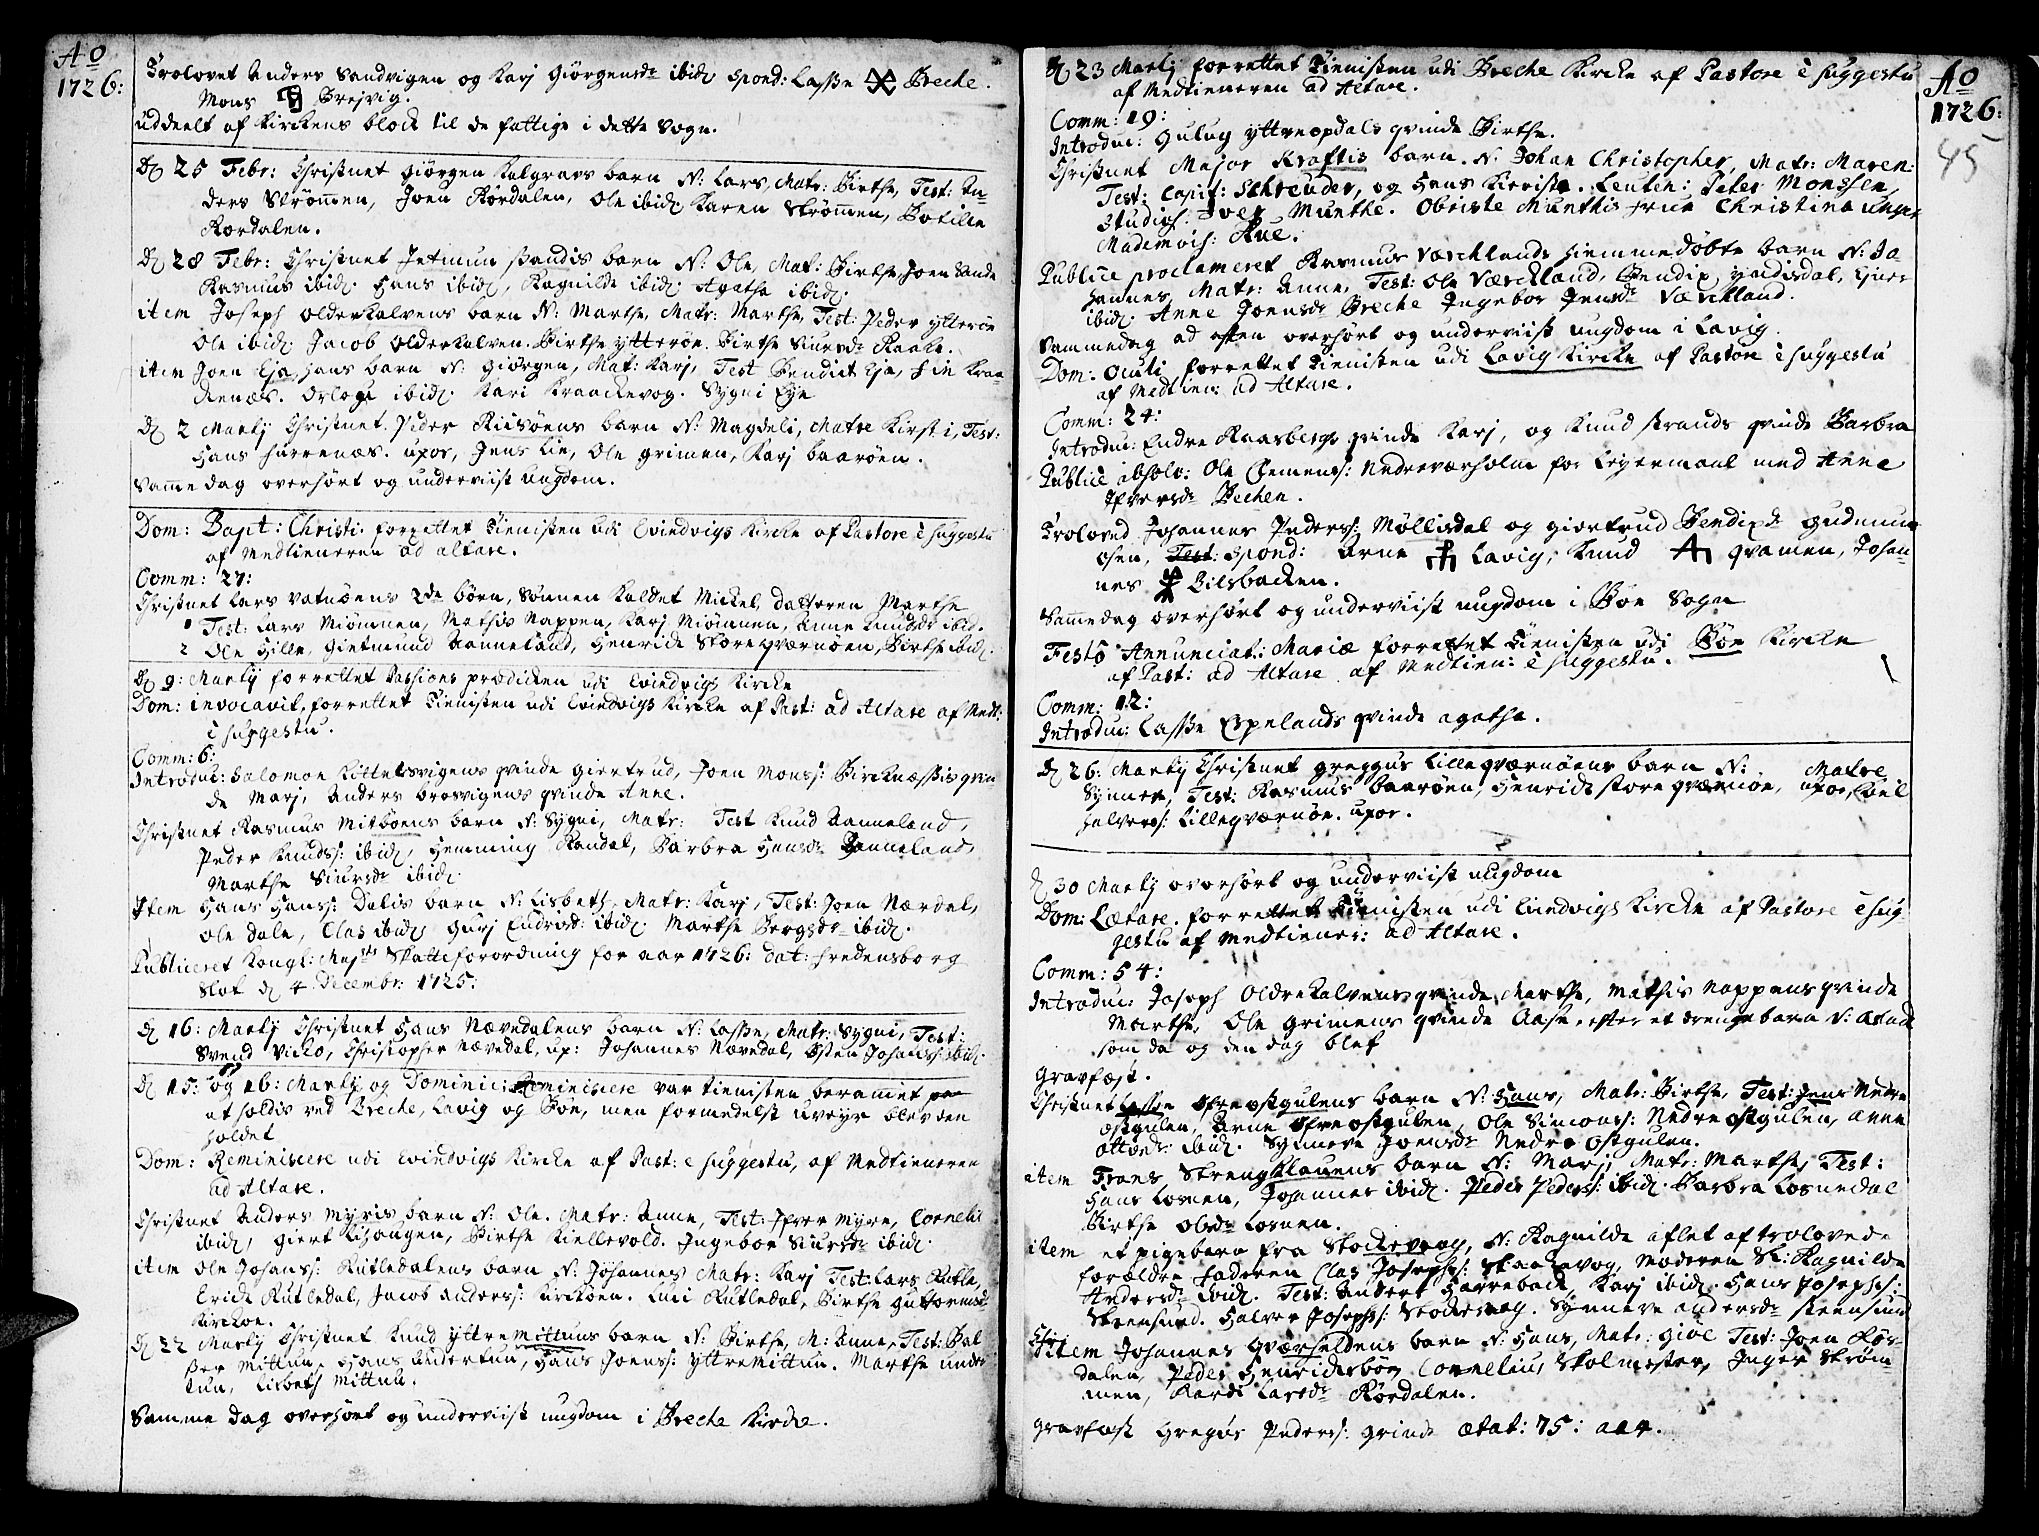 Ao
1726:
Trolovet Anders Sandvigen og Karj Giörgensdr ibid spond: Lasse Breche.
Mons Brejvig.
uddeelt af Kirckens block til de fattige i dette Sogn.
D 25 Febr: Christnet Giörgen Kalgravs barn N: Lars, Matr: Birthe, Test: An-
ders Strömen, Joen Rördalen, Ole ibid, Karen Strömen, Botille
Rördalen.
D 28 Febr: Christnet Jetmun Standis barn N: Ole, Mat: Birthe, Joen Sande
Rasmus ibid. Hans ibid, Ragnilde ibid. Agathe ibid.
item Joseph olderkalvens barn N: Marthe, Matr: Marthe, Test: Peder ytteröe
Ole ibid. Jacob olderkalven. Birthe ytteröe. Birthe Siursdr Raake.
item Joen Eja, hans barn N: Giörgen, Mat: Karj, Test Bendict Eja, Kraa-
kenæs. ibid. Kari Kraackevog. Sygni Eye
D 2 Martij Christnet Peder Riisöens barn N: Magdeli, Matre Kirsti, Test:
Hans furrenæs. uxor, Jens Lie, Ole grimen, Karj baaröen.
Same dag overhört og underviist ungdom.
Dom: Bapt: Christi: forrettet Tienisten udi Evindvigs Kircke af Pastore è suggestu
af Medtieneren ad altare.
Comm: 27:
Christnet Lars Vatnöens 2de börn, Sönnen kaldet Mickel, datteren Marthe
1 Test: Lars Miömnen, Mathis Nappen, Karj Miömnen, Anne Knudsdr ibid.
2 Ole Hille, Gietmund Ranneland, Henrich Storeqværnöen, Birthe ibid.
D 9: Martij forrettet Passions prædicken udi Evindvigs Kircke
Dom: invocavit, forrettet Tienisten udi Evindvigs Kircke af Past: ad Altare af Medt:
è suggestu.
Comm: 6:
Introduc: Salomon Kittelsvigens qvinde Giertrud, Joen Monss: Bircknæssis qvin
de Marj, Anders brosvigens qvinde Anne.
Christnet Rasmus Mitboens barn N: Sygni, Matr: Test Knud Ranneland,
Peder Knuds: ibid, Hemming Randal, Barbra Hansdr Ranneland,
Marthe Siursdr ibid.
Item Hans Hanss: Dalis barn N: Lisbeth, Matr: Karj, Test: Joen Nærdal,
Ole Dale, Clas ibid, Gurj Endresd: ibid. Marthe Bergsdr ibid.
Publiceret Kongl: Mayts Skatteforordning for aar 1726: dat: fredensborg
Slot d 4 Decembr: 1725:
D 16: Martij Christnet Hans Nævedalens barn N: Lasse, Matr: Sygni, Test:
Svend Vicko, Christopher Nævedal, ux: Johannes Nævedal, Johanss: ibid.
D 15: og 16: Martij og Dominic: Reminiscere var tienisten beramet
at holdis ved Breche, Lavig og Böe, men formedelst uveyr blev den
holdet
Dom: Reminiscere udi Evindvigs Kircke af Past: è suggestu, af Medtieneren
ad Altare.
Christnet Anders Myris barn N: Ole. Matr: Anne, Test: Ifver Myre, Corneli
ibid, Giert Birthe Kiellevold. Ingebor Siursdr ibid.
item Ole Johanss: Rutledalens barn N: Johannes Matr: Karj Test: Lars Rutle,
Erich Rutledal, Jacob anderss: Kirköen. Luci Rutledal, Birthe Guttormsdr
Kirköe.
D 22 Martij Christnet Knud yttremittuns barn N: Birthe, M: Anne, Test: Bal
ser Mittun, Hans Undertun, Hans Joenss: yttremittun. Marthe under
tun, Lisbeth Mittun.
Samme dag overhört og underviist ungdom i Breche Kircke.
D 23 Martij forrettet Tienisten udi Breche Kircke af Pastore è suggestu
af Medtieneren ad Altare.
Comm: 19:
Introduc: Gulug yttreopdals qvinde Birthe.
Christnet Major Kraftis barn. N: Johan Christopher, Matr: Maren:
Test: Capit: Schreuder, og Hans Leuten: Peter Monssen,
Studios: Iver Munthe. Obriste Munthis frue Christina
Mademois:
Publice proclameret Rasmus Værcklands hiemmedöbte barn N: Jo-
hannes, Matr: Anne, Test: Ole Værckland, Bendix
ibid. Anne Joensdr Breche Ingebor Jensdr Værckland.
Sammedag ad aften overhört og underviist ungdom i Lavig.
Dom: Oculi forrettet Tienisten udi Lavig Kircke af Pastore è suggestu
af Medtien: ad Altare.
Comm: 24:
Introduc: Endre Raasbergs qvinde Karj, og Knud strands qvinde Barbra
Publice absolv: Ole Clemens: Nedreværholm for Leyermaal med Anne
Ifversdr Bechen.
Troloved Johannes Peders: Möllisdal og Giertrud Bendixdr Gudmun
Test: Spond: Arne Lavig, Knud qvamen, Johan-
nes Bilsbacken.
Samedag overhört og underviist ungdom i Böe Sogn
Festô Annunciat: Mariæ forrettet Tienisten udi Böe Kircke
af Past: ad Altare af Medtien: è suggestu.
Comm: 12:
Introduc: Lasse Espelands qvinde agathe.
D 26: Martij Christnet greggus Lilleqværnöens barn N: Matre
Synneve, Test: Rasmus baaröen, Henrich storeqværnöe, uxor,
Halvers: Lilleqværnöe. uxor.
D 30 Martij overhört og underviist ungdom
Dom: Lætare. forrettet Tienisten udi Evindvigs Kircke af Pastore è sug-
gestu af Medtiener: ad Altare.
Comm: 54:
Introduc: Joseph Oldrekalvens qvinde Marthe, Mathis Nappens qvinde
Marthe, Ole Grimens qvinde Aase, efter et drengebarn N:
som da og den dag blef
gravfæst.
Christnet Lasse Öfreostgulens barn N: Hans, Matr: Birthe, Test: Jens Nedre
ostgulen, Arne Öfreostgulen, Ole Simons: Nedreostgulen, Anne
ottesdr ibid. Synneve Joensdr Nedreostgulen.
item Frans Strengklauens barn N: Marj, Matr: Marthe, Test:
Hans Losnen, Johannes ibid. Peder Peders: ibid. Barbra Losnedal
Birthe Olsdr Losnen.
item et pigebarn fra Stockevaag, N: Ragnilde aflet af trolovede
forældre Faderen Clas Josephs: Skaakevog, Moderen Sl: Ragnilde
Andersdr ibid. Test: Anders Harreback Karj ibid. Hans Josephs:
Steensund. Halver Josephs: Stockevaag. Synneve andersdr steensund
Item Johannes Qværheldens barn N: Hans, Matr: Gioe Test: Joen Rör-
dalen, Peder Henriksböe, Cornelius Skolmester, Inger Ström
men, Kardi Larsdr Rördalen.
gravfæst Gregös Peders: grinde ætat: 75: aar.
Ao
1726:
45